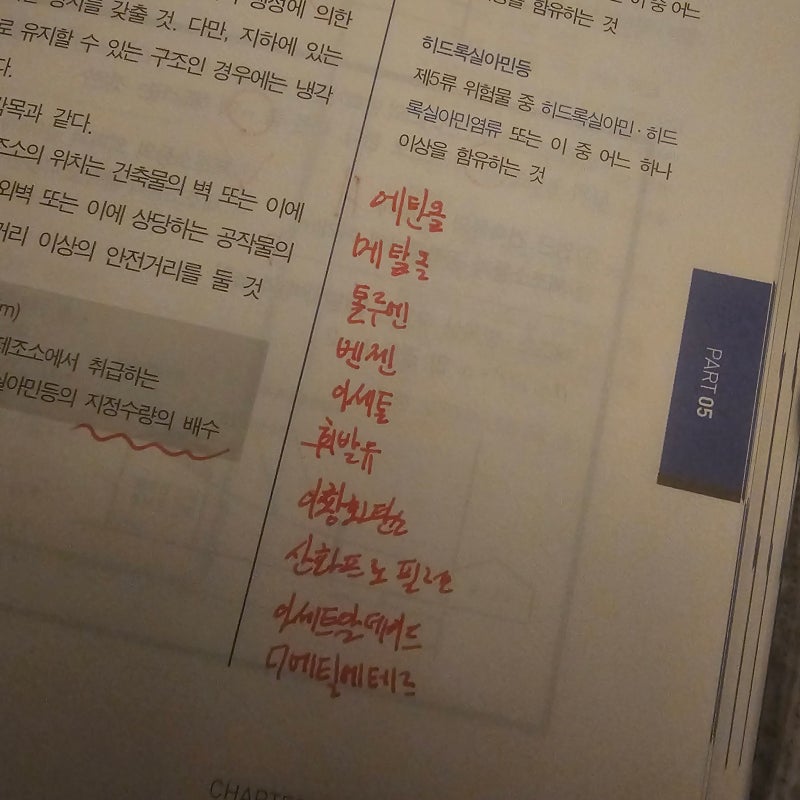 장치를 갖출 것. 다만, 지하에 있는
로 유지할 수 있는 구조인 경우에는 냉각
다.
각목과 같다.
조소의 위치는 건축물의 벽 또는 이에
외벽 또는 이에 상당하는 공작물의
거리 이상의 안전거리를 둘 것
m)
제조소에서 취급하는
실아민등의 지정수량의 배수
이 중 어느
함유하는 것
히드록실아민등
제5류 위험물 중 히드록실아민·히드
록실아민염류 또는 이 중 어느 하나
이상을 함유하는 것
에탄올
메탈올
톨루엔
벤젠
아세톤
휘발유
이황화탄소
산화프로필렌
아세트알데히드
디에틸에테르
PART 05
CHAPTER